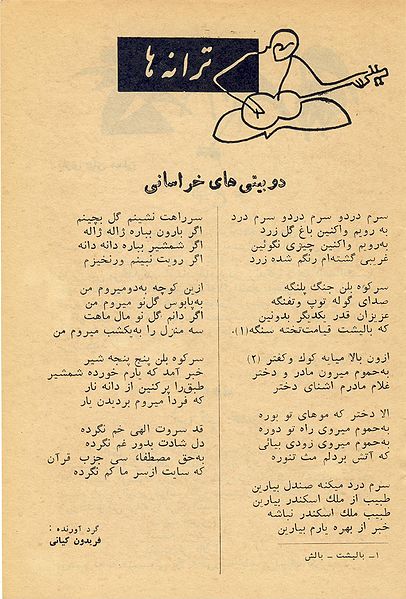 ترانه ها
دوبیتی های خراسانی
سرم دردو سرم دردو سرم درد
به رویم واکنین باغ گل زرد
به‌رویم واکنین چیزی نگوئین
غریبی گشته‌ام رنگم شده زرد
سرکوه بلن جنگ پلنگه
صدای گوله توپ وتفنگه
عزیزان قدر یکدیگر بدونین
که بالیشت قیامت‌تخته سنگه(۱).
ازون بالا میایه کوك وکفتر (۲)
به‌حموم میرون مادر و دختر
غلام مادرم اشنای دختر
الا دختر که موهای تو بوره
به‌حموم میروی راه تو دوره
به‌حموم میروی زودی بیائی
که آتش بردلم مث تنوره
سرم درد میکنه صندل بیارین
طبیب از ملك اسکندر بیارین
طبیب ملك اسکندر نباشه
خبر از بهره یارم بیارین
۱- بالیشت - بالش
سرراهت نشینم گل بچینم
اگر بارون بباره ژاله ژاله
اگر شمشیر بباره دانه دانه
اگر رویت نبینم ورنخیزم
ازین کوچه به‌دومیروم من
به‌پابوس گل‌نو میروم من
اگر دانم گل نو مال ماهت
سه منزل را به‌یکشب میروم من
سرکوه بلن پنج پنجه شیر
خبر آمد که یارم خورده شمشیر
طبق‌را پرکنین از دانه نار
که فردا میروم بردیدن یار
قد سروت الهی خم نگرده
دل شادت بدور غم نگرده
به‌حق مصطفا، سی جزب قرآن
که سایت ازسر ما کم نگرده
گرد آورنده :
فریدون کیانی